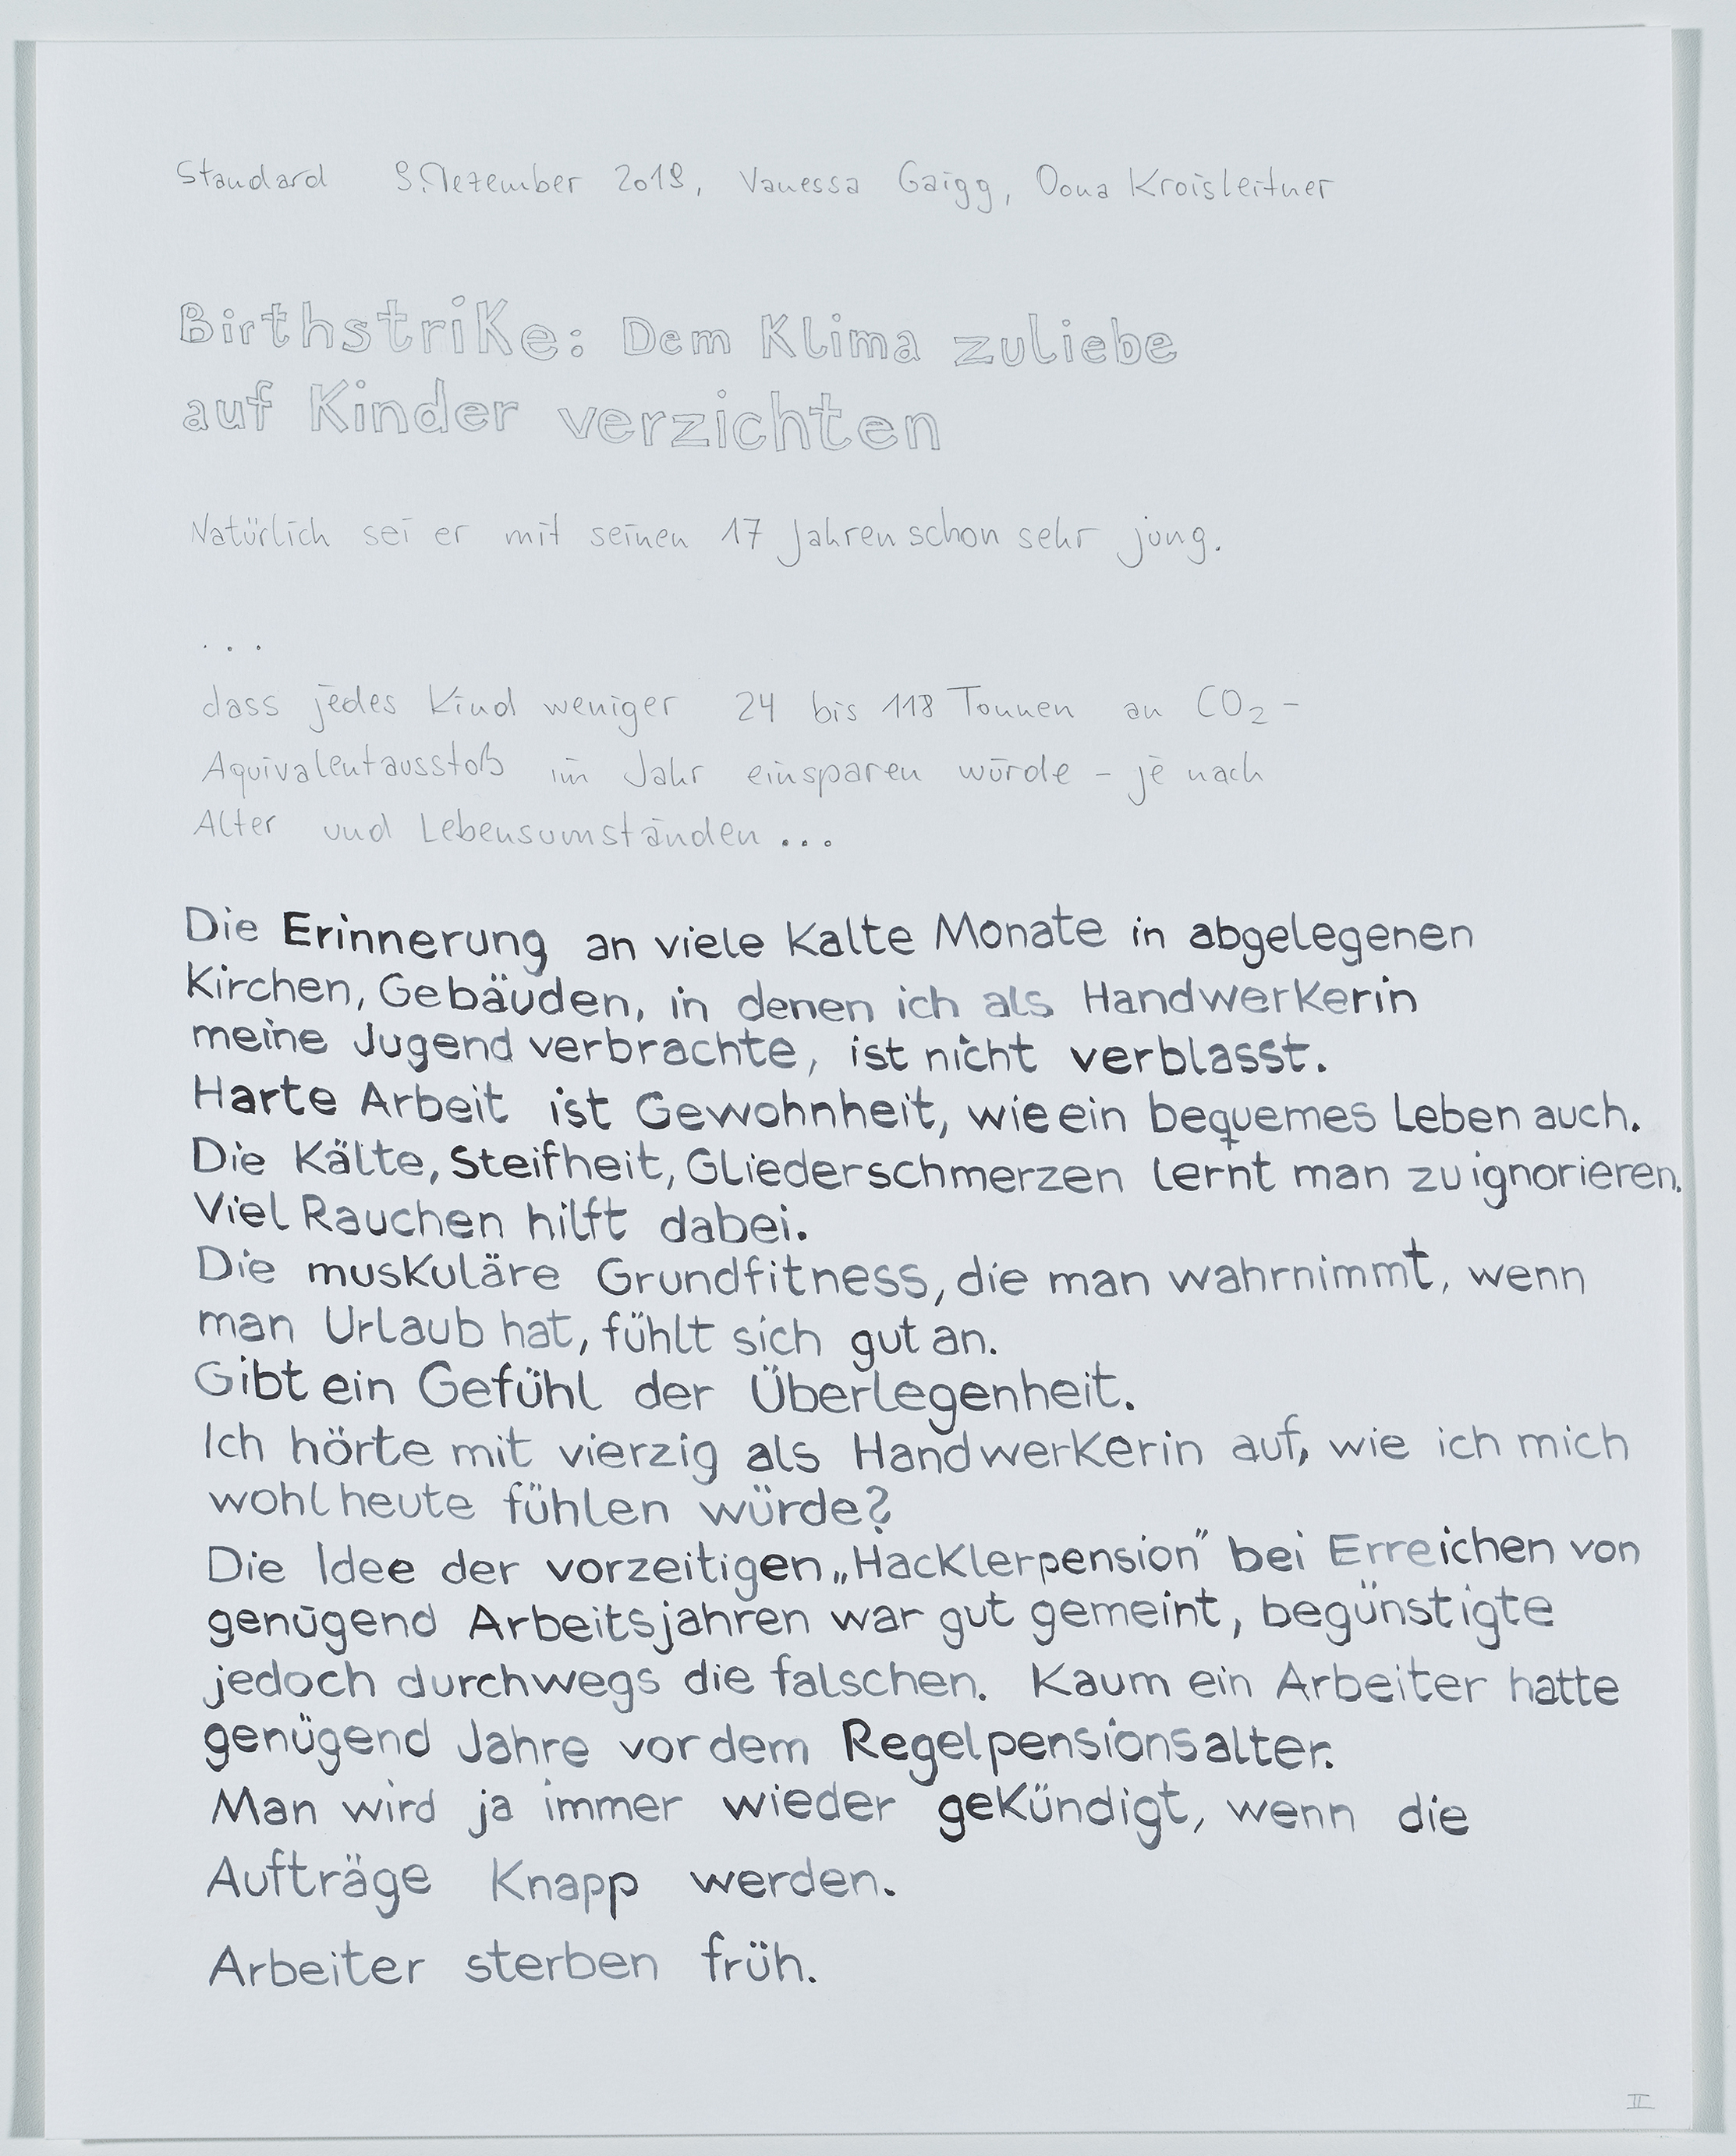 Standard 9. Dezember 2019, Vanessa Gaigg, Oona Kroisleitner
Birthstrike: Dem Klima zuliebe
auf Kinder verzichten
Natürlich sei er mit seinen 17 Jahren schon sehr jung.
...
dass jedes Kind weniger 24 bis 118 Tonnen an CO₂-
Äquivalentausstoß im Jahr einsparen würde – je nach
Alter und Lebensumständen ...
Die Erinnerung an viele kalte Monate in abgelegenen
Kirchen, Gebäuden, in denen ich als Handwerkerin
meine Jugend verbrachte, ist nicht verblasst.
Harte Arbeit ist Gewohnheit, wie ein bequemes Leben auch.
Die Kälte, Steifheit, Gliederschmerzen lernt man zu ignorieren.
Viel Rauchen hilft dabei.
Die muskuläre Grundfitness, die man wahrnimmt, wenn
man Urlaub hat, fühlt sich gut an.
Gibt ein Gefühl der Überlegenheit.
Ich hörte mit vierzig als Handwerkerin auf, wie ich mich
wohl heute fühlen würde?
Die Idee der vorzeitigen „Hacklerpension" bei Erreichen von
genügend Arbeitsjahren war gut gemeint, begünstigte
jedoch durchwegs die falschen. Kaum ein Arbeiter hatte
genügend Jahre vor dem Regelpensionsalter.
Man wird ja immer wieder gekündigt, wenn die
Aufträge knapp werden.
Arbeiter sterben früh.
II